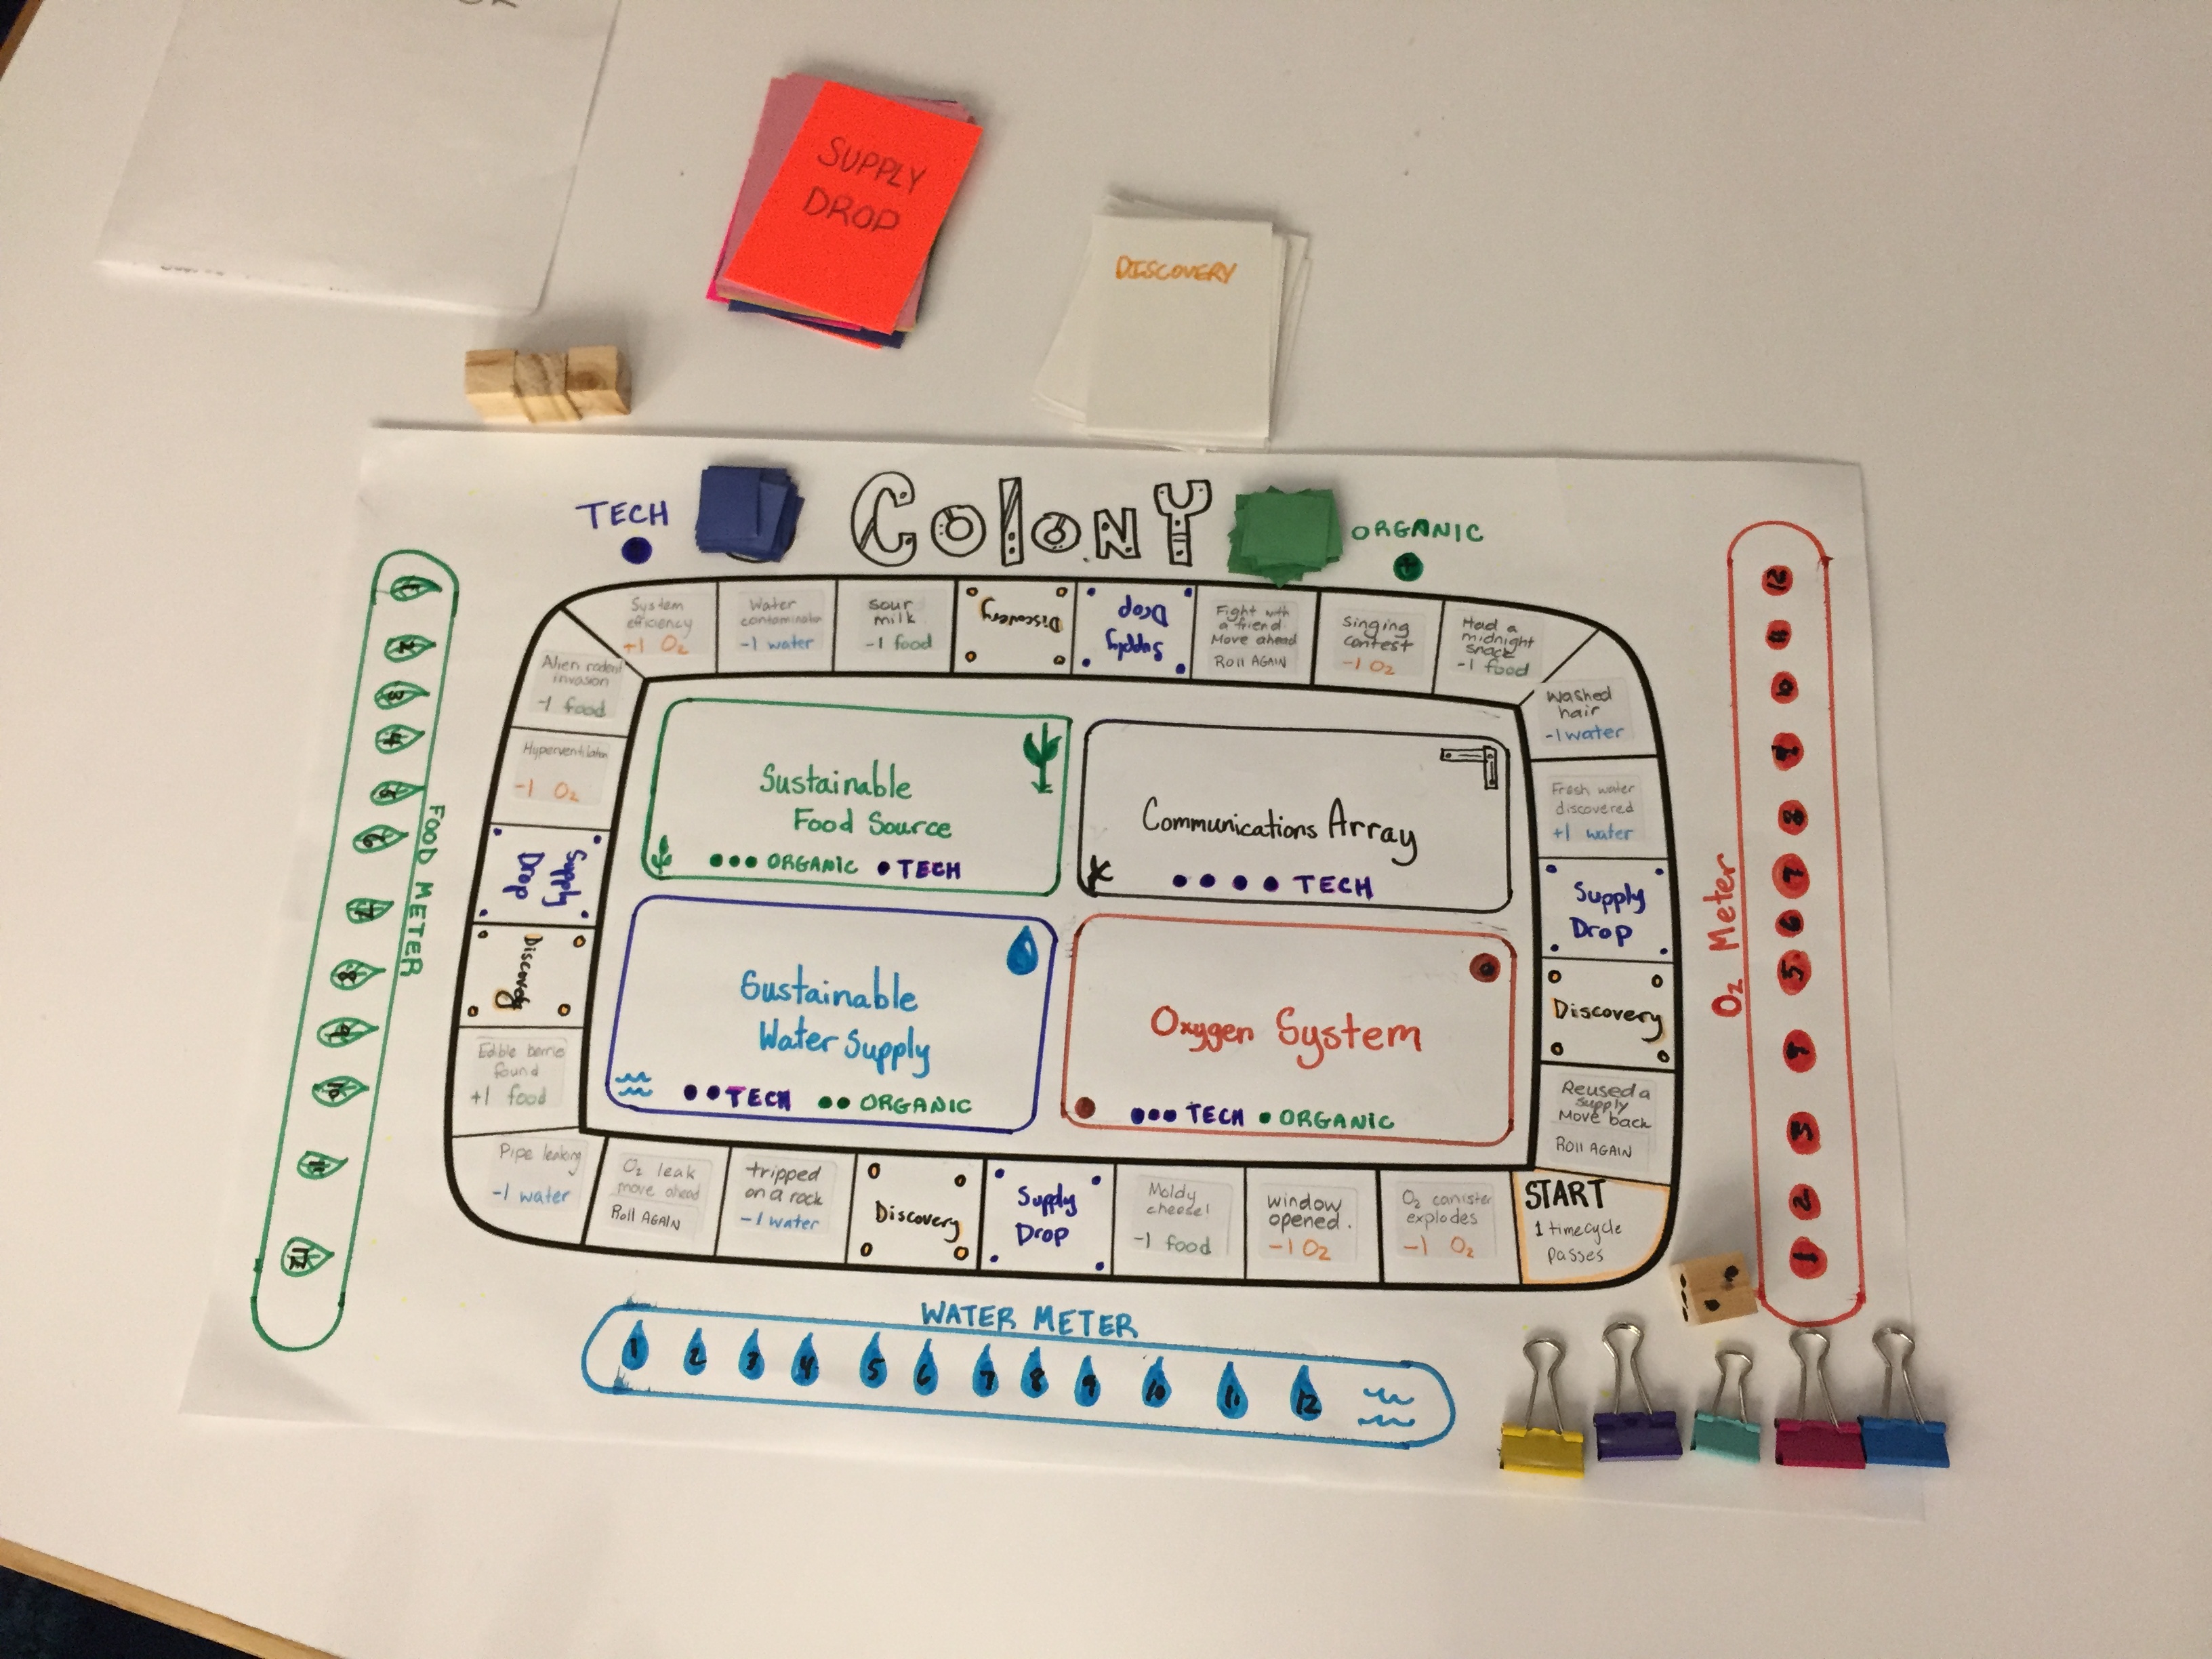 SUPPLY
DROP
DISCOVERY
TECH
COlONY
ORGANIC
System
efficiency
+1 O₂
Water
-1 water
sour
milk
-1 food
Discovery
Supply
Drop
Fight with
a friend
Move ahead
Roll AGAIN
Singing
contest
-1 O₂
Had a
midnight
snack
-1 food
Washed
hair
-1 water
Fresh water
discovered
+1 water
Supply
Drop
Discovery
Reused a
supply
Move back
Roll AGAIN
START
1 timecycle
passes
O₂ canister
explodes
-1 O₂
window
opened.
-1 O₂
Moldy
cheese!
-1 food
Supply
Drop
Discovery
tripped
on a rock
-1 water
O₂ leak
move ahead
Roll AGAIN
Pipe leaking
-1 water
Edible berries
found
+1 food
Discovery
Supply
Drop
Hyperventilation
-1 O₂
Alien rodent
invasion
-1 food
Sustainable
Food Source
ORGANIC TECH
Communications Array
TECH
Sustainable
Water Supply
TECH ORGANIC
Oxygen System
TECH ORGANIC
FOOD METER
1
2
3
4
5
6
7
8
9
10
11
12
WATER METER
1 2 3 4 5 6 7 8 9 10 11 12
O₂ Meter
12
11
9
8
7
6
5
3
2
1